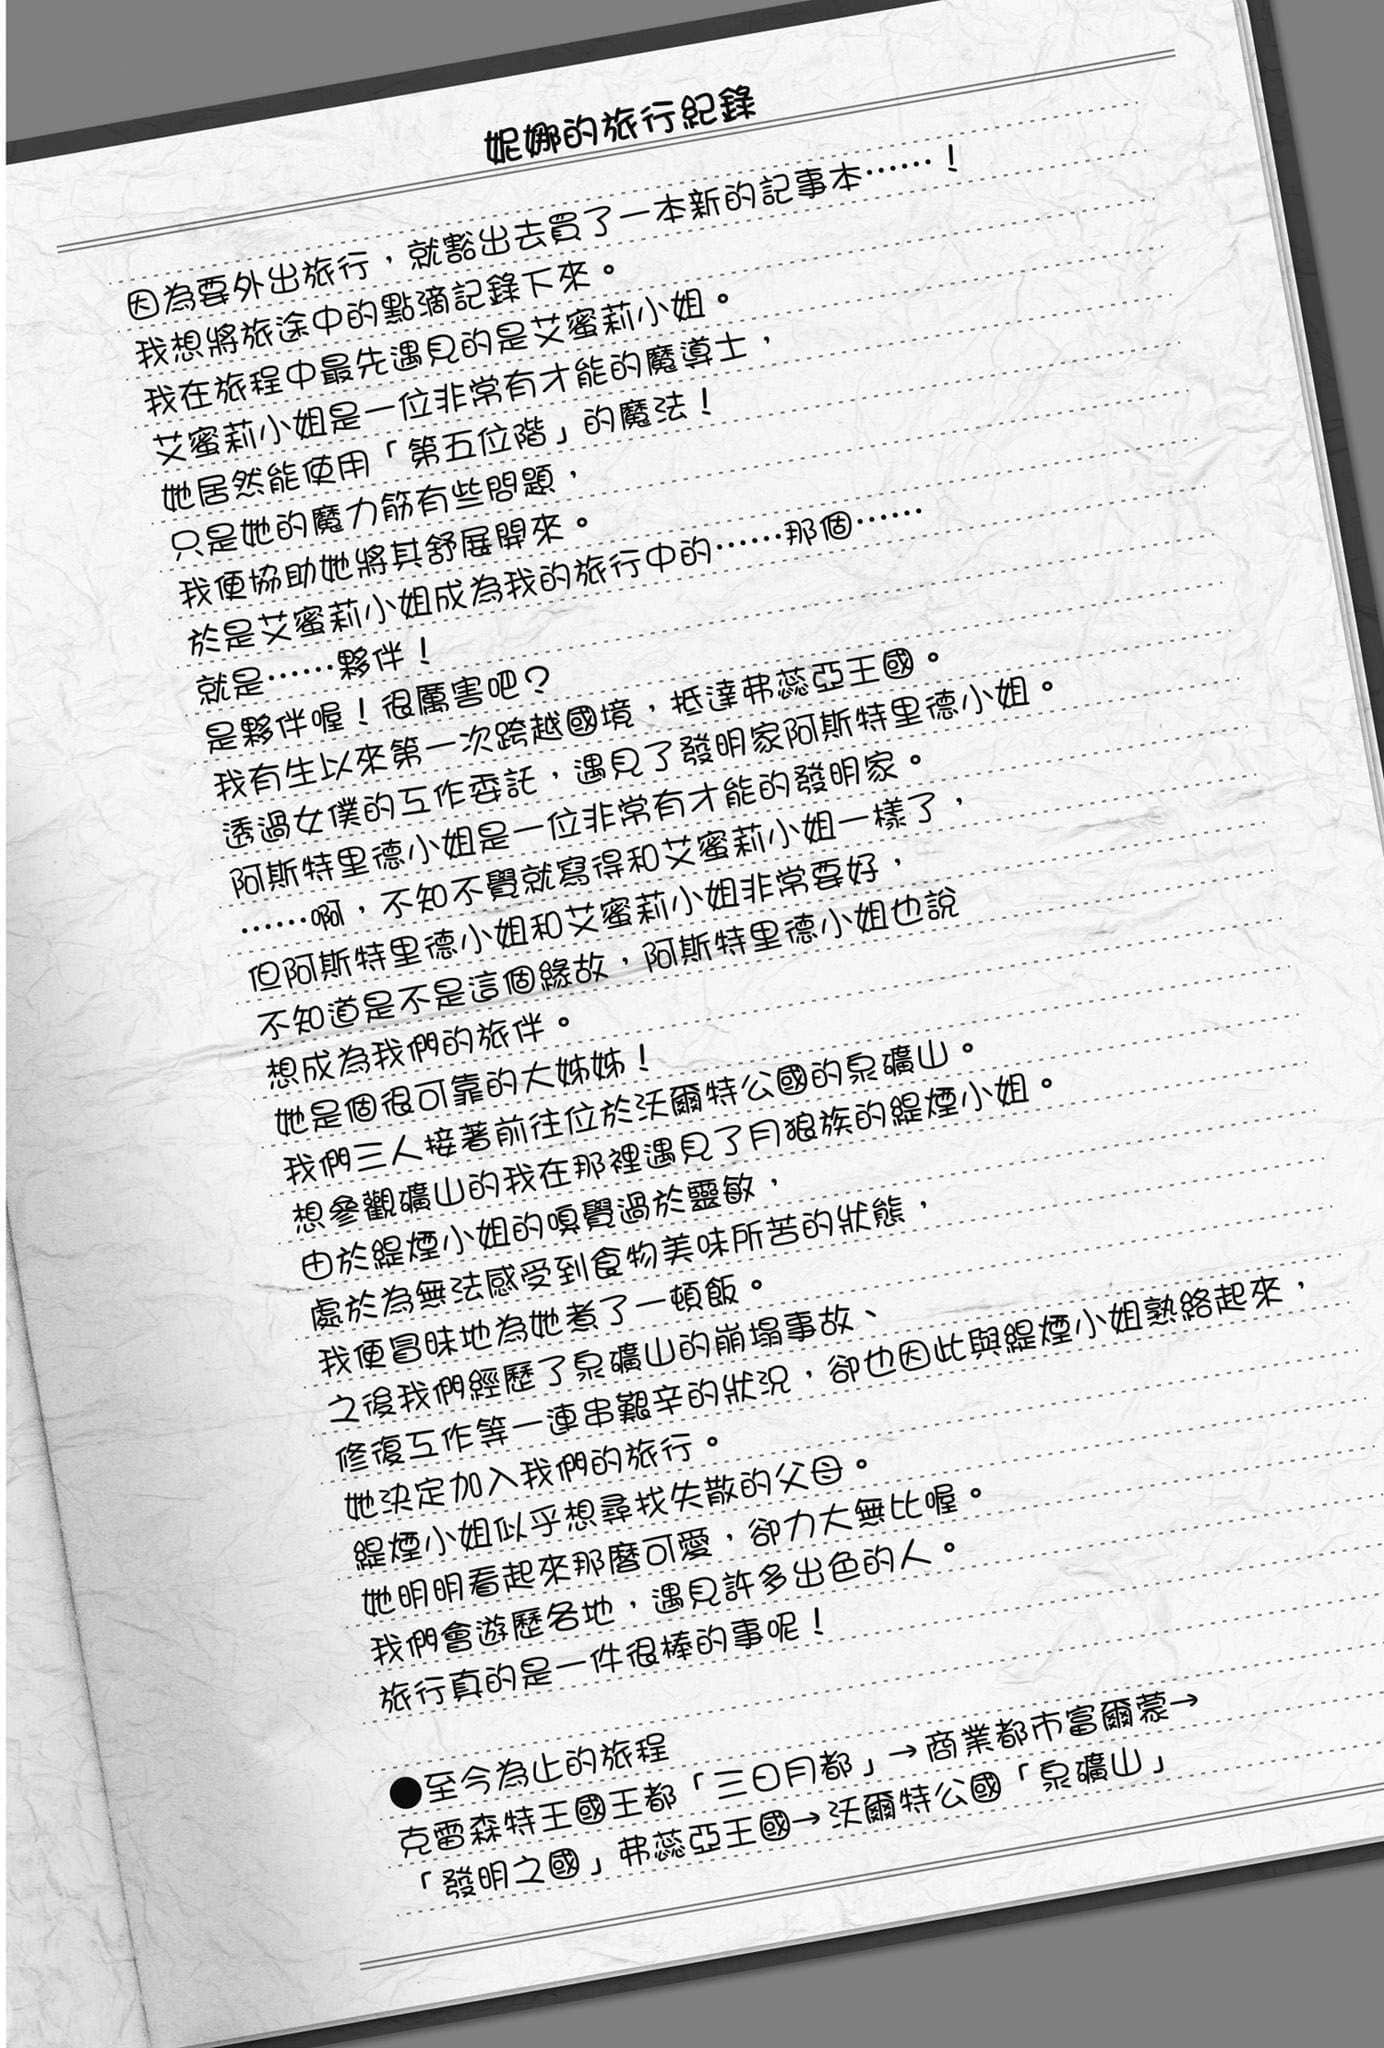 妮娜的旅行紀錄
因為要外出旅行，就豁出去買了一本新的記事本……！
我想將旅途中的點滴記錄下來。
我在旅程中最先遇見的是艾蜜莉小姐。
艾蜜莉小姐是一位非常有才能的魔導士，
她居然能使用「第五位階」的魔法！
只是她的魔力筋有些問題，
我便協助她將其舒展開來。
於是艾蜜莉小姐成為我的旅行中的……那個……
就是……夥伴！
是夥伴喔！很厲害吧？
我有生以來第一次跨越國境，抵達弗蕊亞王國。
透過女僕的工作委託，遇見了發明家阿斯特里德小姐。
阿斯特里德小姐是一位非常有才能的發明家。
……啊，不知不覺就寫得和艾蜜莉小姐一樣了，
但阿斯特里德小姐和艾蜜莉小姐非常要好，
不知道是不是這個緣故，阿斯特里德小姐也說
想成為我們的旅伴。
她是個很可靠的大姊姊！
我們三人接著前往位於沃爾特公國的泉礦山。
想參觀礦山的我在那裡遇見了月狼族的緹煙小姐。
由於緹煙小姐的嗅覺過於靈敏，
處於為無法感受到食物美味所苦的狀態，
我便冒昧地為她煮了一頓飯。
之後我們經歷了泉礦山的崩塌事故、
修復工作等一連串艱辛的狀況，卻也因此與緹煙小姐熟絡起來，
她決定加入我們的旅行。
緹煙小姐似乎想尋找失散的父母。
她明明看起來那麼可愛，卻力大無比喔。
我們會遊歷各地，遇見許多出色的人。
旅行真的是一件很棒的事呢！
●至今為止的旅程
克雷森特王國王都「三日月都」→商業都市富爾蒙→
「發明之國」弗蕊亞王國→沃爾特公國「泉礦山」